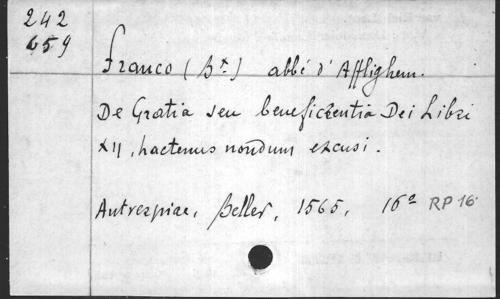 242
659
Franco (Bx) abbé d'Afflighem.
De Gratia seu beneficentia Dei Libri
XII, hactenus nondum excusi.
Antverpiae, Beller, 1565, 16º RP 16